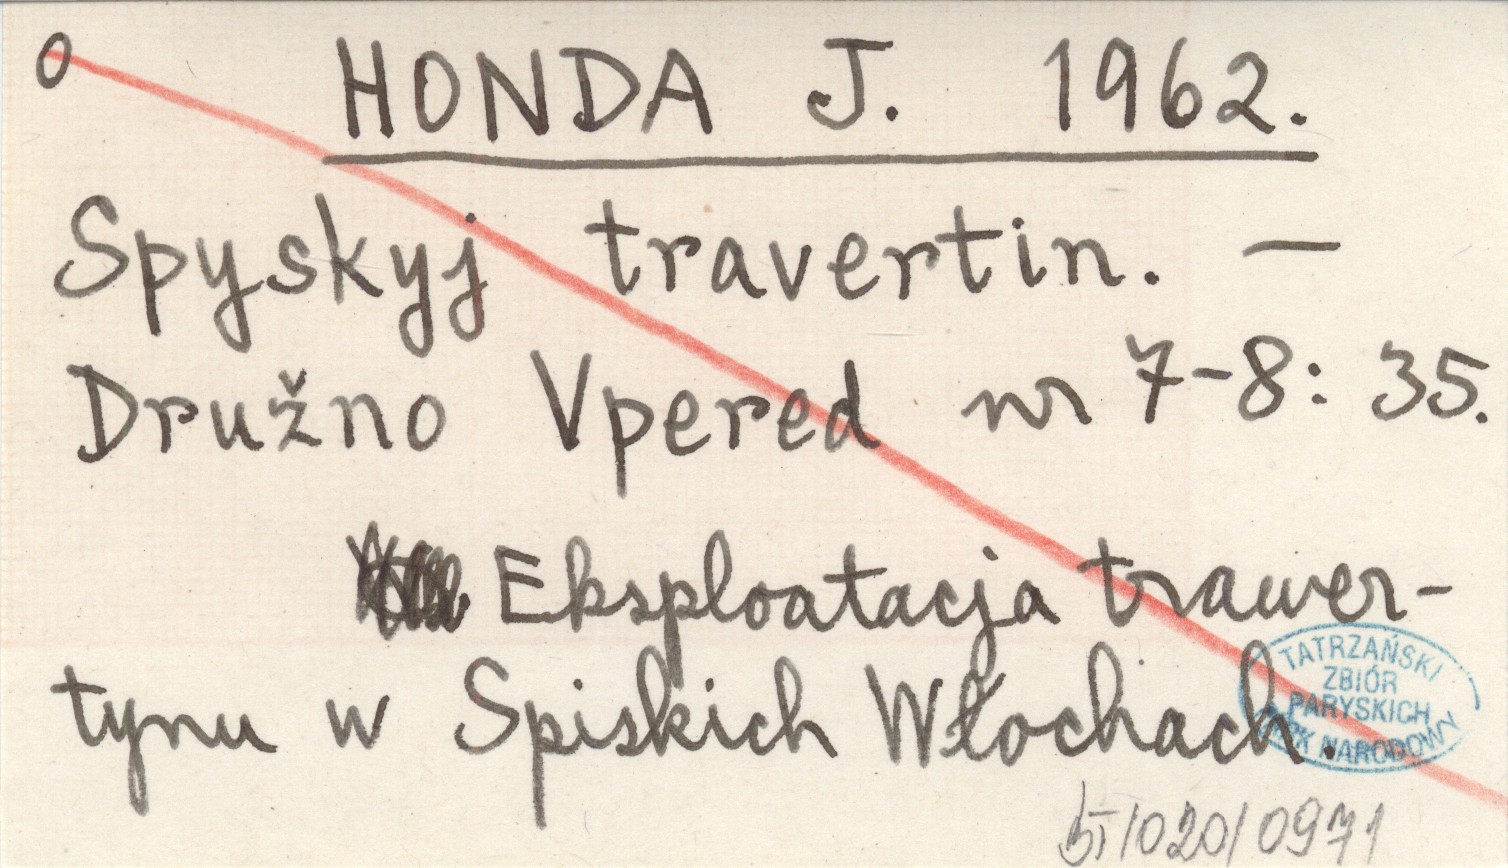 0 HONDA J. 1962.
Spyskyj travertin. —
Družno Vpered nr 7-8: 35.
Eksploatacja trawer-
tynu w Spiskich Włochach.
TATRZAŃSKI
ZBIÓR
PARYSKICH
PARK NARODOWY
/020/0971